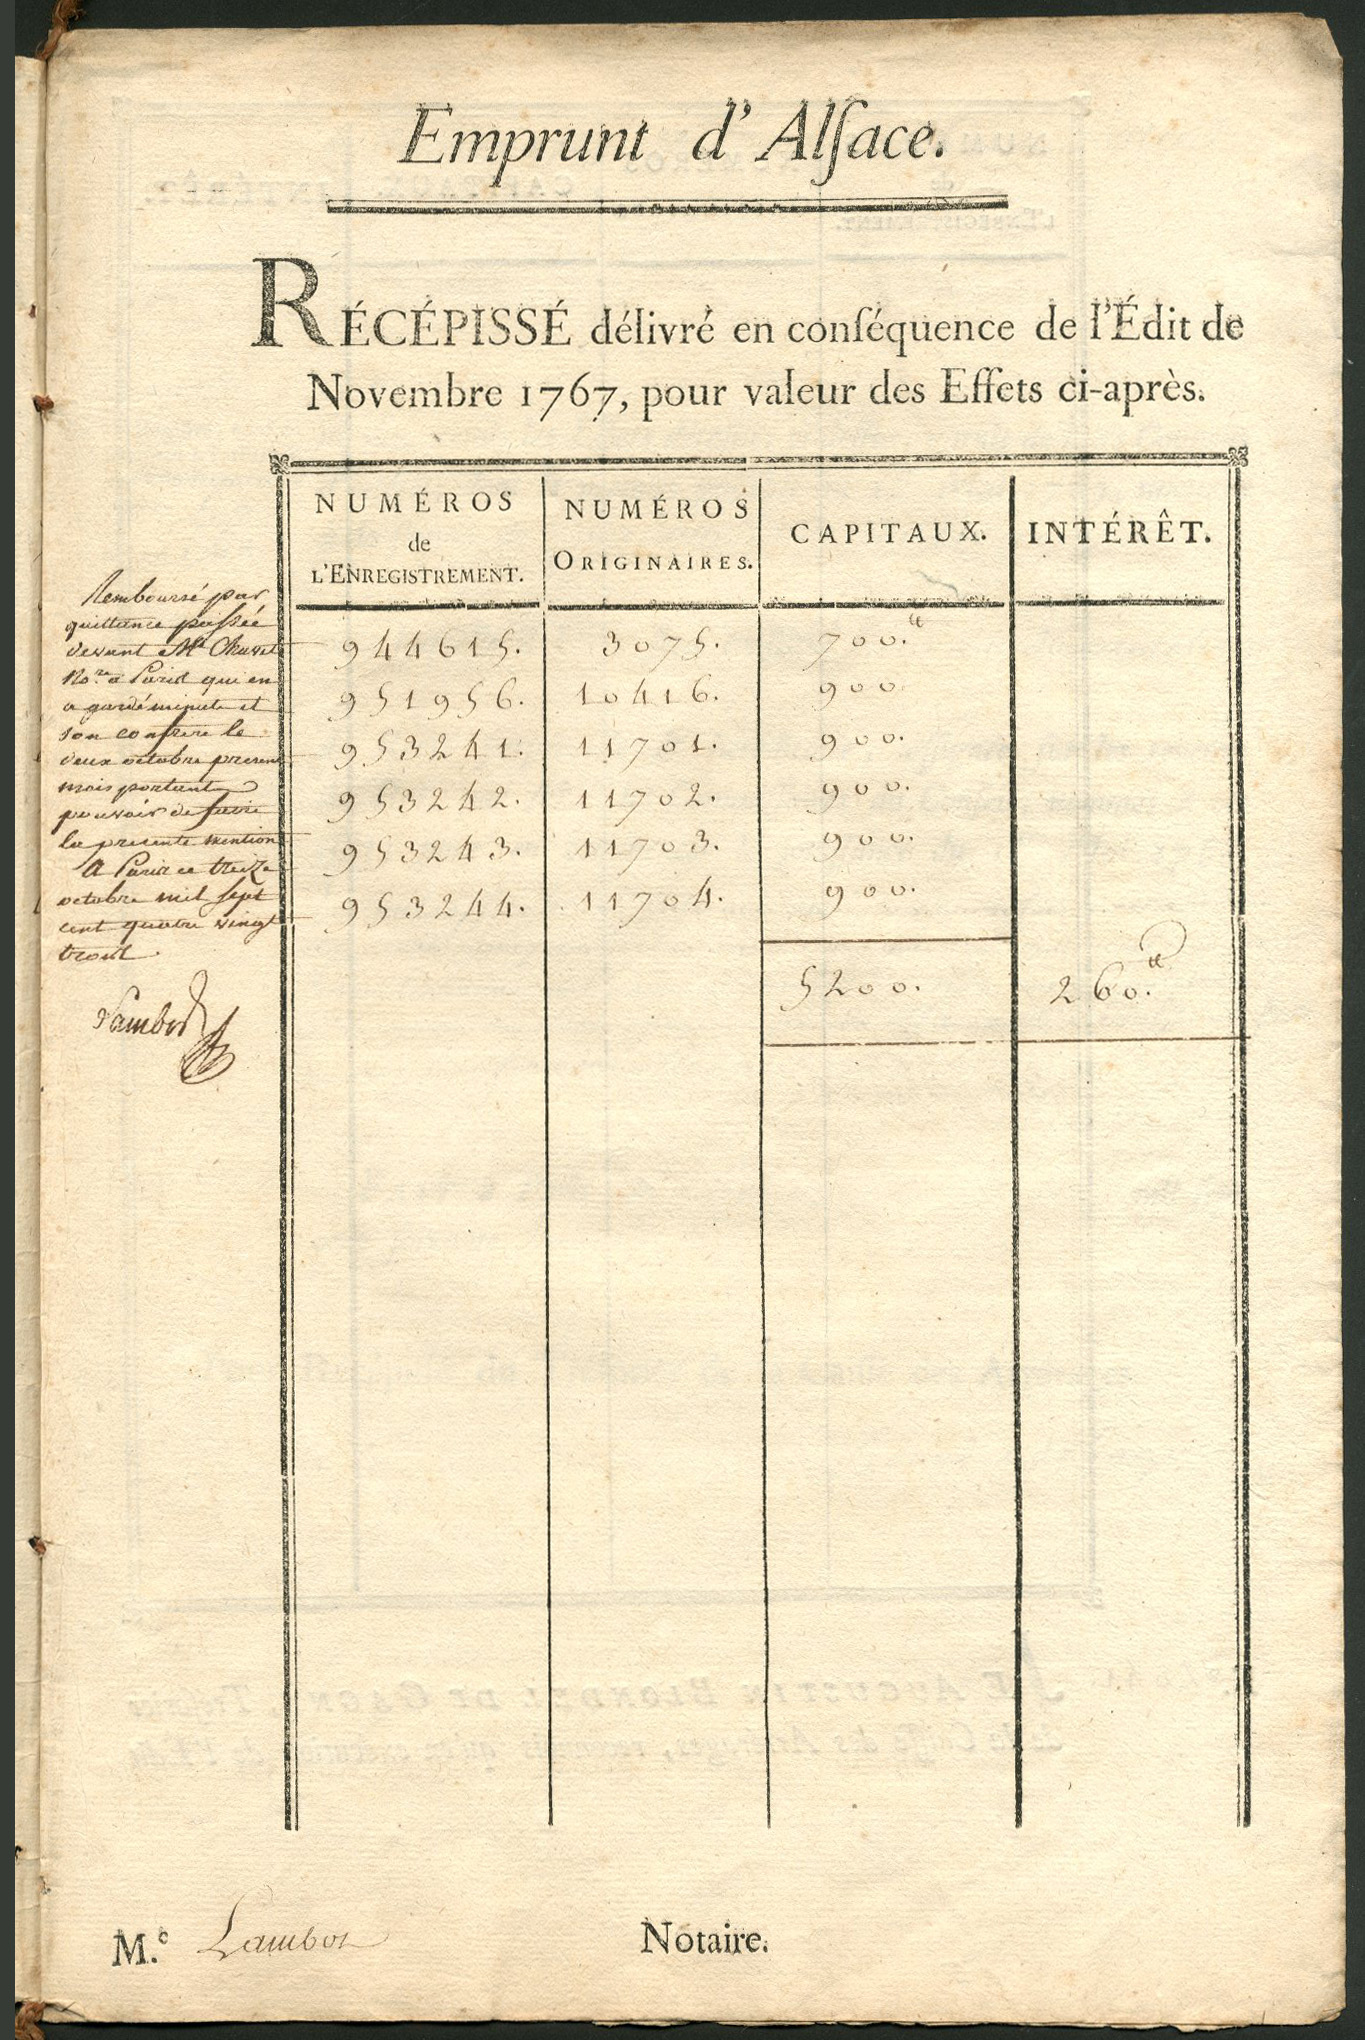 Emprunt d'Alſace.
RÉCÉPISSÉ délivré en conſéquence de l'Édit de
Novembre 1767, pour valeur des Effets ci-après.
NUMÉROS de L'ENREGISTREMENT. NUMÉROS ORIGINAIRES. CAPITAUX. INTÉRÊT.
944615. 3075. 700.tt
951956. 10416. 900.
953241. 11701. 900.
953242. 11702. 900.
953243. 11703. 900.
953244. 11704. 900.
5200. 260.tt
Remboursé par
quittance paſsée
devant Me
Nore a Paris qui en
a gardé minute et
son confrere le
deux octobre present
mois portant
pouvoir de faire
la presente mention
A Paris ce treize
octobre mil sept
cent quatre vingt
trois
Lambot
M.e Lambot Notaire.